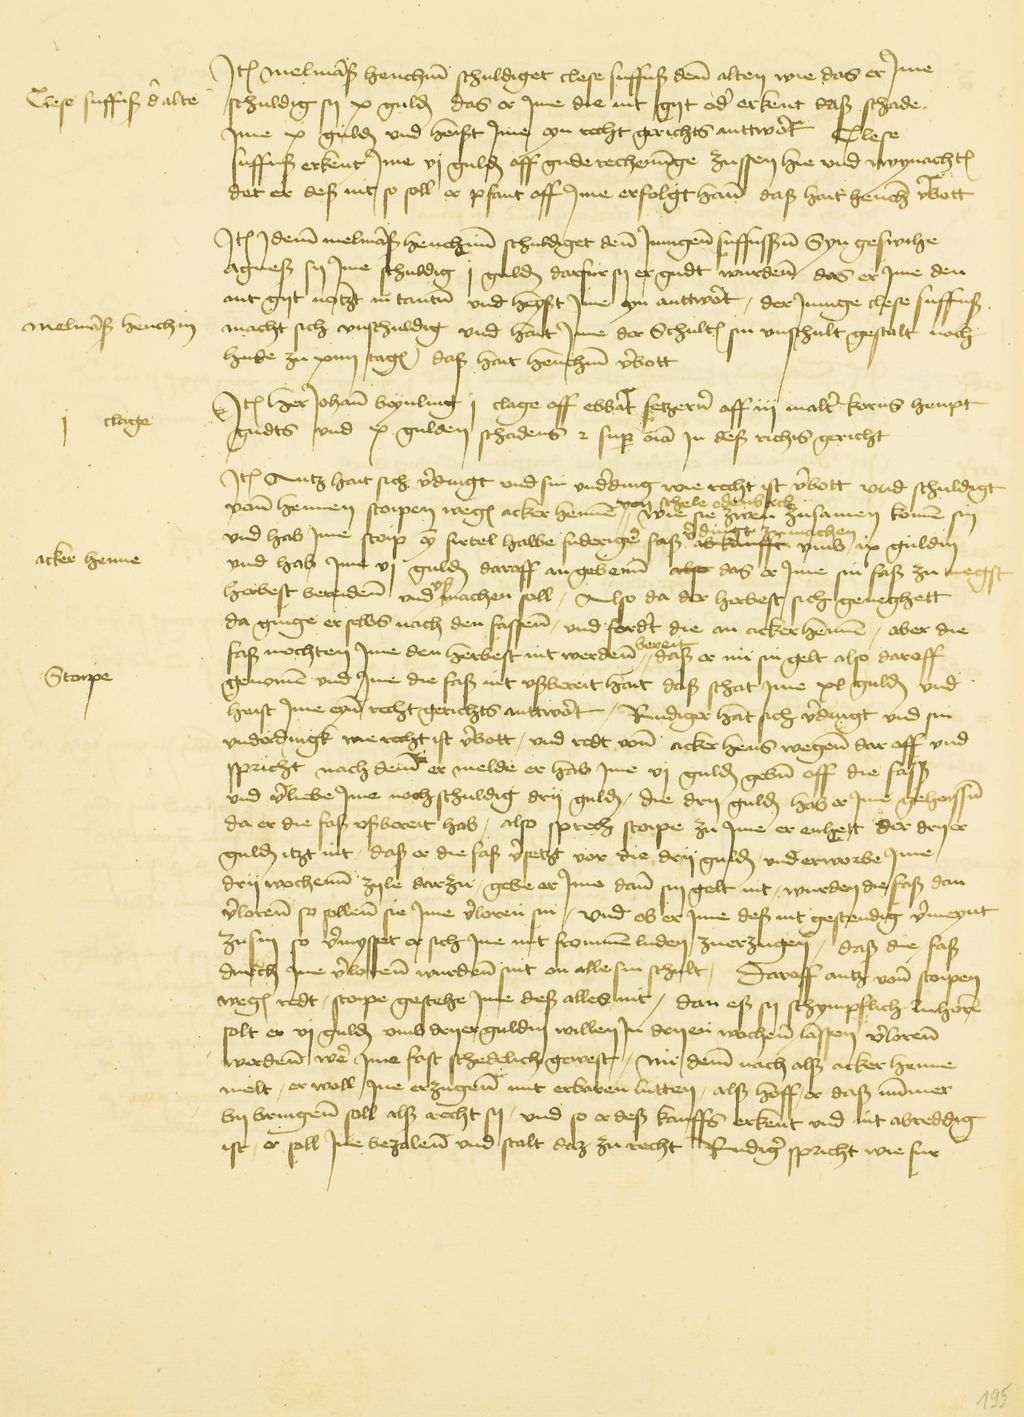 Clese suffuß d' alte
Jt(em) melmā(n)ß henchin schuldiget clese suffuß dem̄ alten wie das er Jme
schuldig sij x guld(en) das er Jme die nit gijt od' erkent daß schade
Jme x guld(en) vnd heist Jme eyn recht gerichts anttwo(r)t Clese
suffuß erkent Jme vj guld(en) off gude rechenūge zussen hie vnd wynacht(en)
det er deß nit so soll er pfant off Jme erfolgt han daß hait hench(in) v(er)bott
Jt(em) Jdem̄ melmā(n)ß henchin schuldiget dem̄ Jungen suffussen Syn geswihe
agneß sij Jme schuldig j guld(en) darfur sij er gudt wurden das er Jme den
nit gijt in tantū vnd heyst Jme eyn anttwo(r)t der Junge clese suffuß
melmā(n)ß henchin
macht sich vnschuldig vnd hait Jme der Schult(eß) sin vnschult gestalt noch
hude zu xiiij tag(en) daß hait henchin v(er)bott
j clage
Jt(em) her Johan beynling j clage off ebbat fetzern off iij malt(er) korns heupt
gudts vnd x gulden schadens (et) sup(er) o(mn)ia Jn deß richts gericht
Jt(em) Antz hait sich v(er)dingt vnd sin vnd(er)ding wie recht ist v(er)bott vnd schuldigt
vom̄ hennen storpen weg(en) acker hennen wie sie zwen zusamen komē sin
von schele odenbach
vnd hab Jme storp firtel halbe fuderig(er) faß vmb ix guldin
v(er)dingt zu machen
acker henne
vnd hab Jme vj guld(en) daroff angebem̄ das er Jme sin faß zu negst
herbest bereiden vnd machen soll Also da der herbest sich geneghett
da ginge er selbs nach den fassen vnd fordt die an acker hennē aber die
faß mochten Jme den herbest nit werden daß er nu sin gelt also daroff
bereit
Storpe
genomē vnd Jme die faß nit vßbereit hait daß schat Jme xl guld(en) vnd
heist Jme eyn recht gerichts anttwo(r)t Rudiger hait sich v(er)dingt vnd sin
vnderdingk wie recht ist v(er)bott vnd redt vom̄ acker hens wegen dar off vnd
spricht nach dem̄ er melde er hab Jme vj guld(en) geb(e)n off die fasß
vnd v(er)liebe Jme noch schuldig drij guld(en) die drij guld(en) hab er Jme geheissen
da er die faß vßbereit hab also sprech storpe zu Jme er enhett der drijer
guld(en) itzt nit daß er die faß v(er)setzt vor die drij guld(en) vnd erworbe Jme
drij wochenn zyle darzu gebe er Jme dan sin gelt nit wurden die faß dan
v(er)loren so sollen sie Jme v(er)loren sin vnd ob er Jme deß nit gestendig v(er)meynt
zu sin so v(er)mysset er sich Jne mit frommen luden zuerzugen daß die faß
durch Jne v(er)loren wurden sint on alle sin schult Daroff antz vom̄ storpen
weg(en) redt storpe gestehe Jme deß alles nit dan eß sij schympflich zuhoren
solt er vj guld(en) vmb drijer guldin willen Jn drijen wochen lassen v(er)loren
werden we(r) Jme fast schedelich gewest Nu dem̄ nach alß acker henne
melt er woll Jne erzugen mit erbaren lutten alß hoff er daß nūmer
by bringen soll alß recht sij vnd so er deß kauffs erkent vnd nit abreddig
ist er soll Jne bezalen vnd stalt daz zu recht Rudig(er) spricht wie fur
195